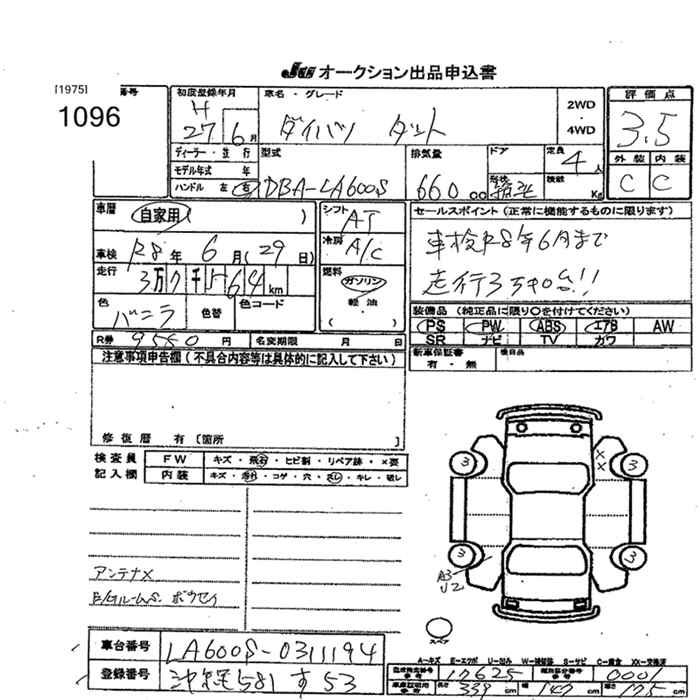 JU オークション出品申込書
[1975] 番号
1096
初度登録年月
H 27 6月
車名・グレード
ダイハツ タント
2WD
・
4WD
評価点
3.5
外装 内装
C C
ディーラー・並行
モデル年式 年
ハンドル 左 右
型式
DBA-LA600S
排気量
660 cc
ドア
形状 箱型
定員
4 人
積載
Kg
車歴
自家用 ( )
車検 R8年 6月(29日)
走行
3万 7千 164 km
色
バニラ
色替
色コード
シフト
AT
冷房
A/C
燃料
ガソリン
軽油
( )
セールスポイント(正常に機能するものに限ります)
車検R8年6月まで
走行3万キロ台!!
装備品(純正品に限り○を付けてください)
PS PW ABS エアB AW
SR ナビ TV カワ
R券 9560 円 名変期限 月 日
新車保証書
有・無
後日品
注意事項申告欄(不具合内容等は具体的に記入して下さい)
修復歴 有 [箇所 ]
検査員
記入欄
FW キズ・飛石・ヒビ割・リペア跡・×要
内装 キズ・汚れ・コゲ・穴・スレ・キレ・破レ
アンテナX
E/Gルーム S. ボウセイ
3 3
X
X
3 3
A3
U2
スペア
車台番号 LA600S-0311194
登録番号 沖縄581 す 53
A-キズ E-エクボ U-凹み W-補修跡 S-サビ C-腐食 XX-交換済
型式指定番号 17625 類別区分番号 0001
長さ 339 cm 幅 147 cm 高さ 175 cm